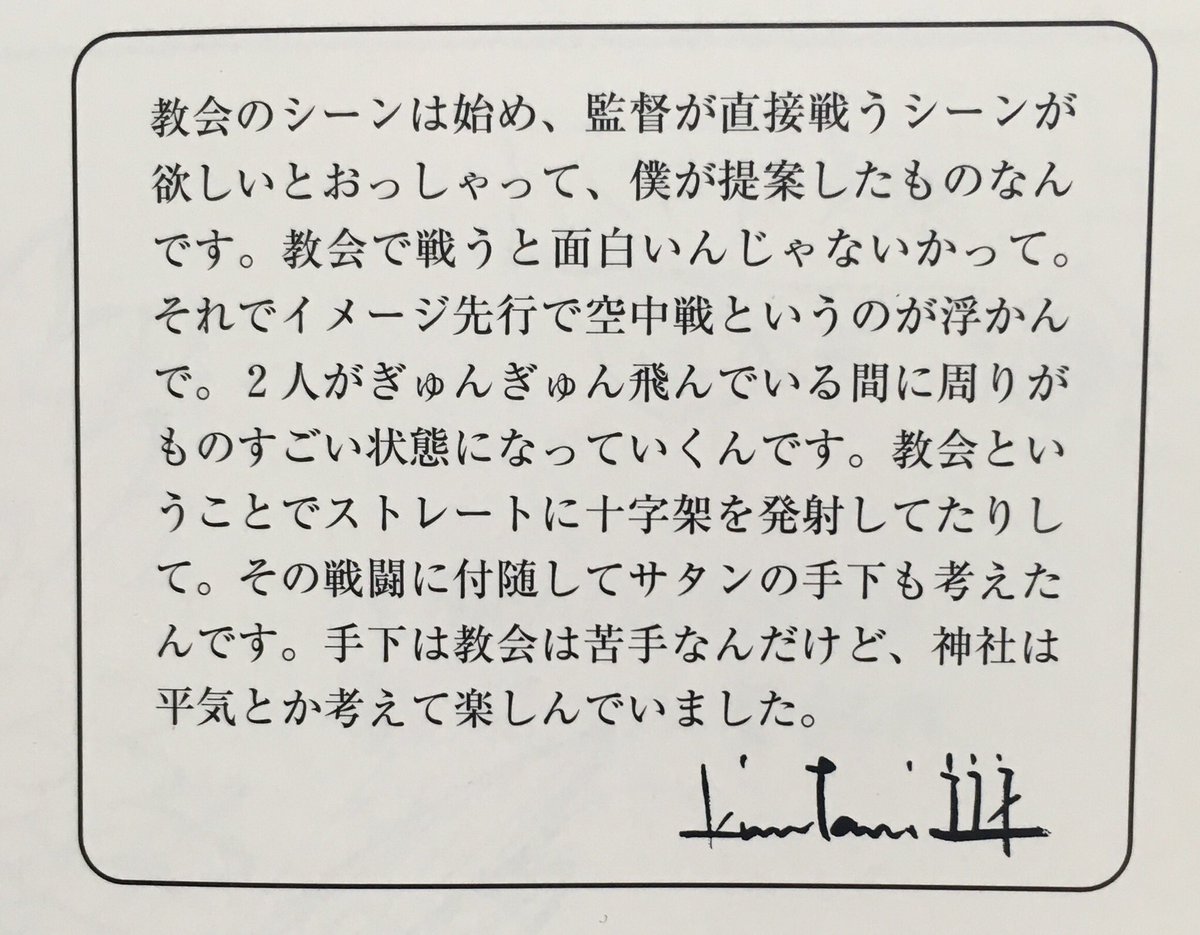 教会のシーンは始め、監督が直接戦うシーンが
欲しいとおっしゃって、僕が提案したものなん
です。教会で戦うと面白いんじゃないかって。
それでイメージ先行で空中戦というのが浮かん
で。２人がぎゅんぎゅん飛んでいる間に周りが
ものすごい状態になっていくんです。教会とい
うことでストレートに十字架を発射してたりし
て。その戦闘に付随してサタンの手下も考えた
んです。手下は教会は苦手なんだけど、神社は
平気とか考えて楽しんでいました。